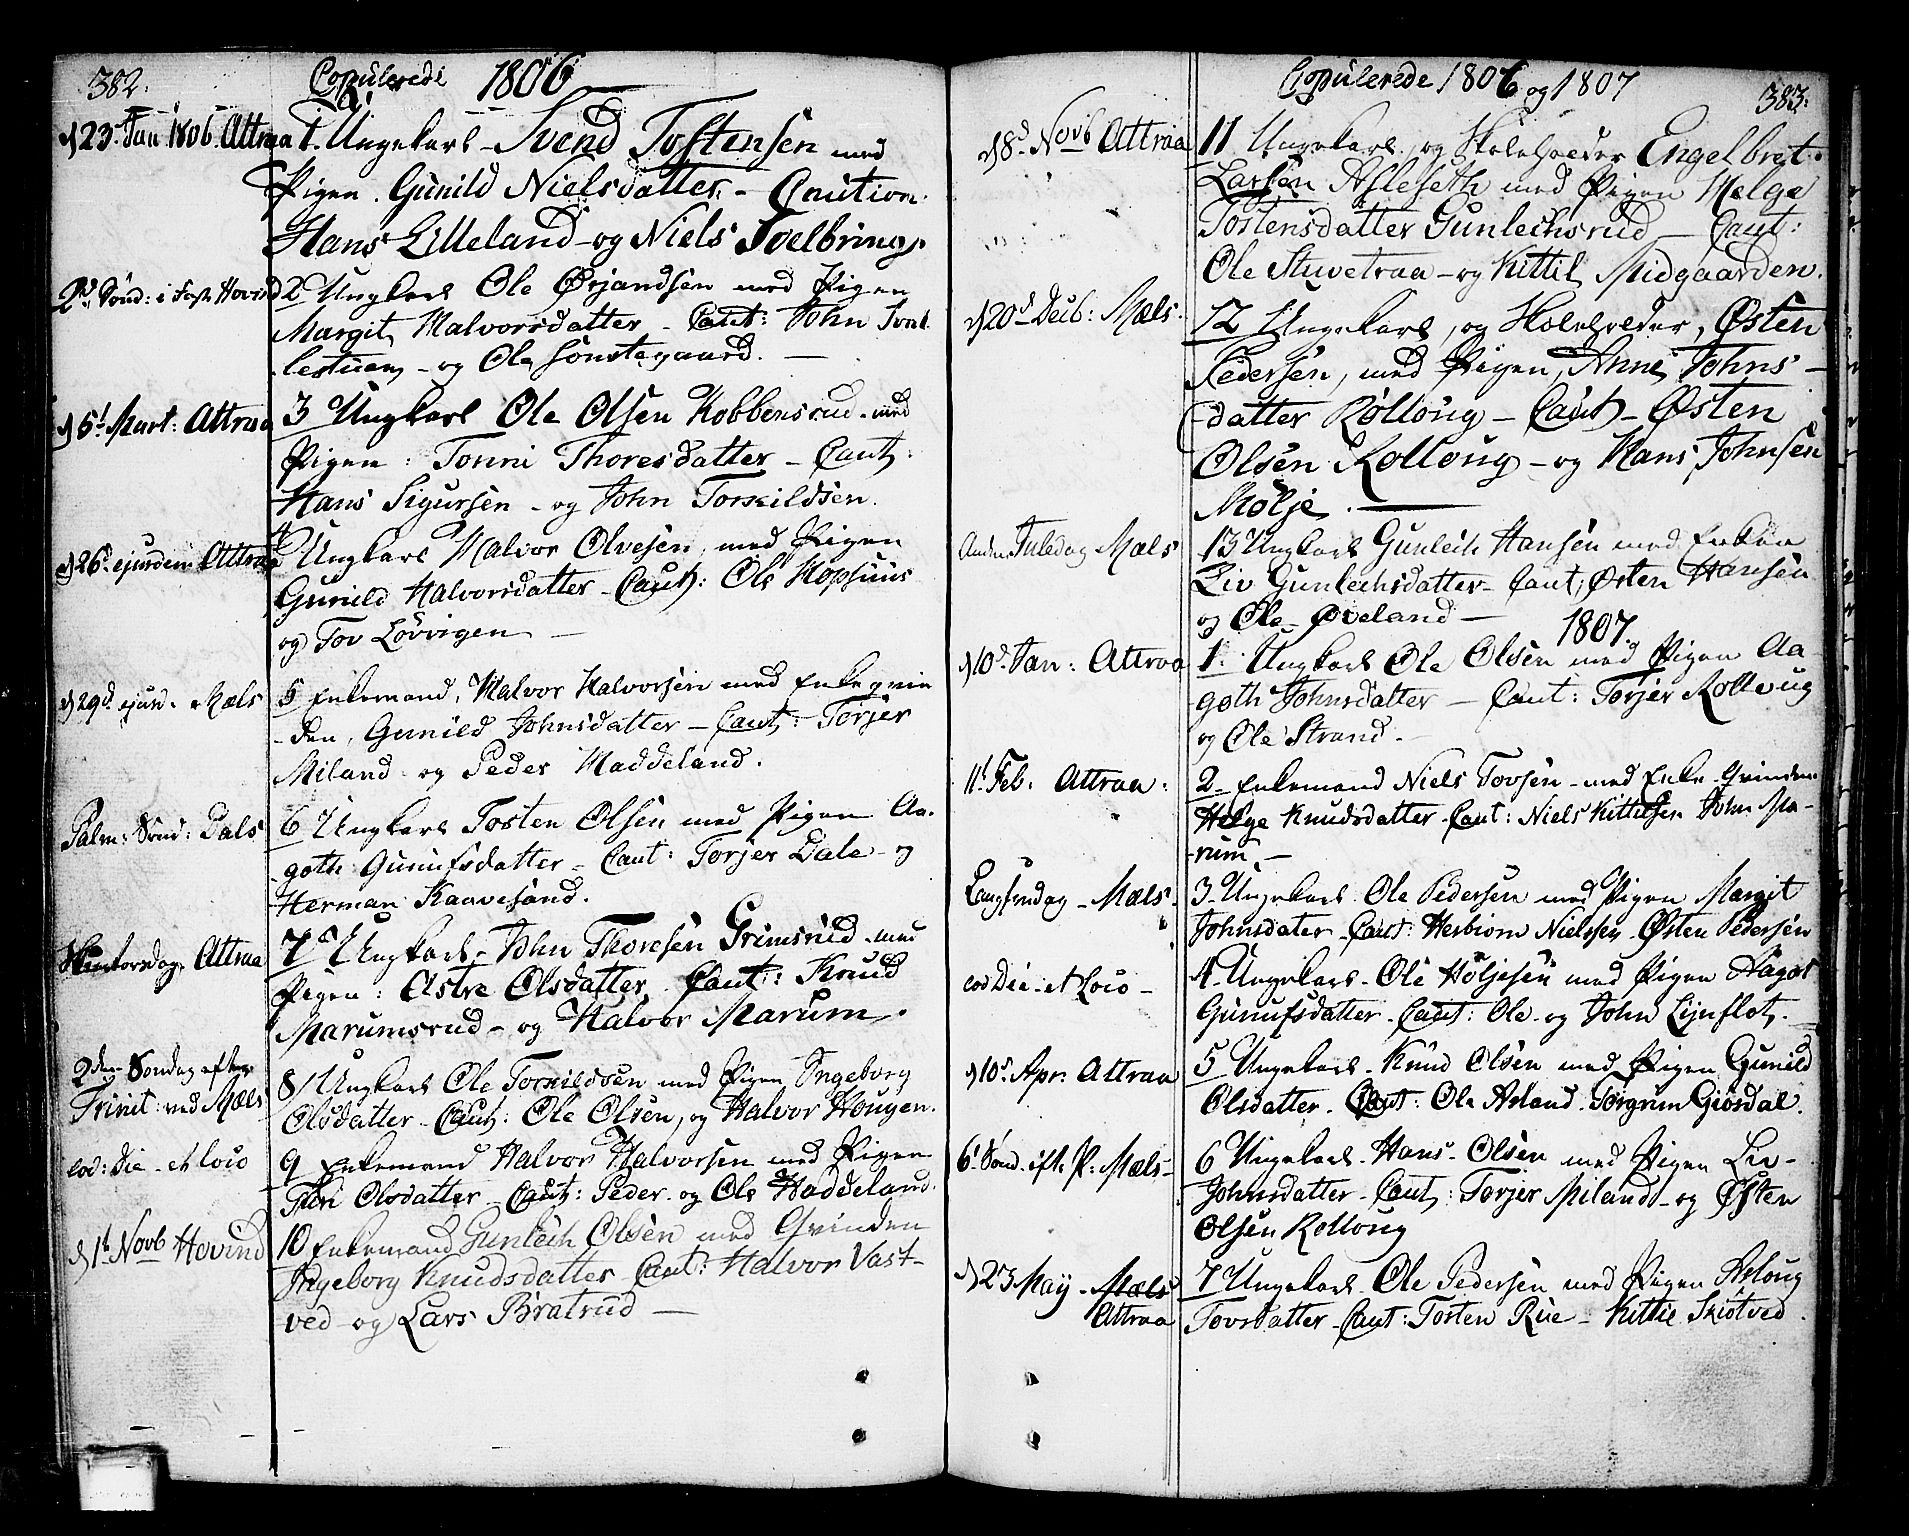 382. Copulerede 1806
d 23. Jan 1806. Attraa 1. Ungekarl - Svend Tostensen med
Pigen. Gunild Nielsdatter. - Caution.
Hans Lilleland - og Niels Svelbring.
2den Sönd: i Faste Hovind 2 Ungkarl Ole Ørjandsen med Pigen
Margit Halvorsdatter - Caut: John
lestuen - og Ole Sönstegaard. -
d 5t Mart: Attraa 3 Ungkarl Ole Olsen Kobbensrud - med
Pigen: Tonni Thoresdatter - Caut:
Hans Sigursen - og John Torkildsen.
d 26d ejusdem Attraa 4 Ungkarl Halvor Olvesen, med Pigen
Gunild Halvorsdatter - Caut: Ole Hopsuus
og Tov Lövvigen -
d 29d ejusd. Mæls 5 Enkemand, Halvor Halvorsen med Enkeqvin
den, Gunild Johnsdatter - Caut: Torjer
Miland og Peder Haddeland.
Palm: Sönd: Dals 6 Ungkarl Tosten Olsen med Pigen Aa-
goth Gunufsdatter - Caut: Torjer Dale - og
Herman Kaavesand.
Skiertorsdag Attraa 7 Ungkarl - John Thoresen Grimsrud - med
Pigen: Astre Olsdatter. Caut: Knud
Marumsrud - og Halvor Marum.
2den Söndag efter
Trinit: ved Mæls 8 Ungkarl Ole Torkildsen med Pigen Ingeborg
Olsdatter - Caut: Ole Olsen, og Halvor Hougen.
eod: die - et loco 9 Enkemand Halvor Halvorsen med Pigen
Olsdatter - Caut: Peder - og Ole Haddeland.
d 1t Novb Hovind 10 Enkemand Gunleih Olsen med Qvinden
Ingeborg Knudsdatter - Caut: Halvor Vast-
ved - og Lars Bratrud -
Copulerede 1806 og 1807 383.
d 8d Novb Attraa 11 Ungekarl, og Skoleholder Engelbret
Larsen Asleseth med Pigen Helge
Tostensdatter Gunlechsrud - Caut:
Ole Stuvetraa - og Kittil Midgaarden.
d 20d Decb: Mæls. 12 Ungekarl, og Skoleholder, Østen
Pedersen, med Pigen, Anne Johns-
datter Rolloug - Caut - Østen
Olsen Rolloug - og Hans Johnsen
Molje. -
Anden Juledag Mæls 13 Ungkarl Gunleih Hansen med Enken
Liv Gunlechsdatter - Caut; Østen Hansen
og Ole Øveland -
1807.
d 10d Jan: Attraa 1. Ungkarl Ole Olsen med Pigen Aa-
goth Johnsdatter - Caut: Torjer Rolloug
og Ole Strand. -
11t Feb: Attraa: 2 - Enkemand Niels Tovsen - med Enke-Qvinden
Helge Knudsdatter Caut: Niels Kittilsen John Ma-
rum. -
Langfredag - Mæls - 3 - Ungekarl Ole Pedersen med Pigen Margit
Johnsdater - Caut: Herbiorn Nielssen - Østen Pedersen
eod Die - et Loco - 4 - Ungekarl - Ole Höljesen med Pigen Aagot
Gunufsdatter - Caut: Ole - og John Lijnflot. -
d 10d Apr: Attraa 5 Ungekarl - Knud Olsen med Pigen Gunild
Olsdatter - Caut: Ole Asland - Torgrim Giösdal.
6t Sönd. eft. P: Mæls - 6 Ungekarl - Hans - Olsen med Pigen Liv -
Johnsdatter - Caut: Torjer Miland - og Østen
Olsen Rolloug
d 23 Maÿ - Mæls 7 Ungekarl - Ole Pedersen med Pigen Asloug
Attraa Tovsdatter - Caut: Tosten Rue - Kittil Skiötved.